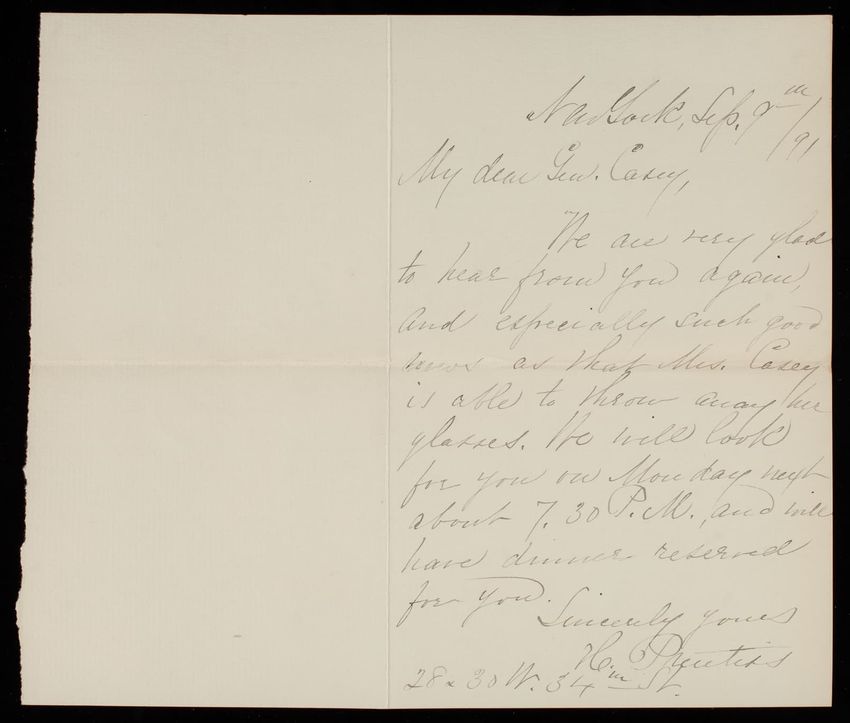 New York, Sep. 9th/91
My dear Gen. Casey,
We are very glad
to hear from you again,
and especially such good
news as that Mrs. Casey
is able to throw away her
glasses. We will look
for you on Monday next
about 7.30 P.M., and will
have dinner reserved
for you.
Sincerely yours
H. Prentiss
28 & 30 W. 34th St.